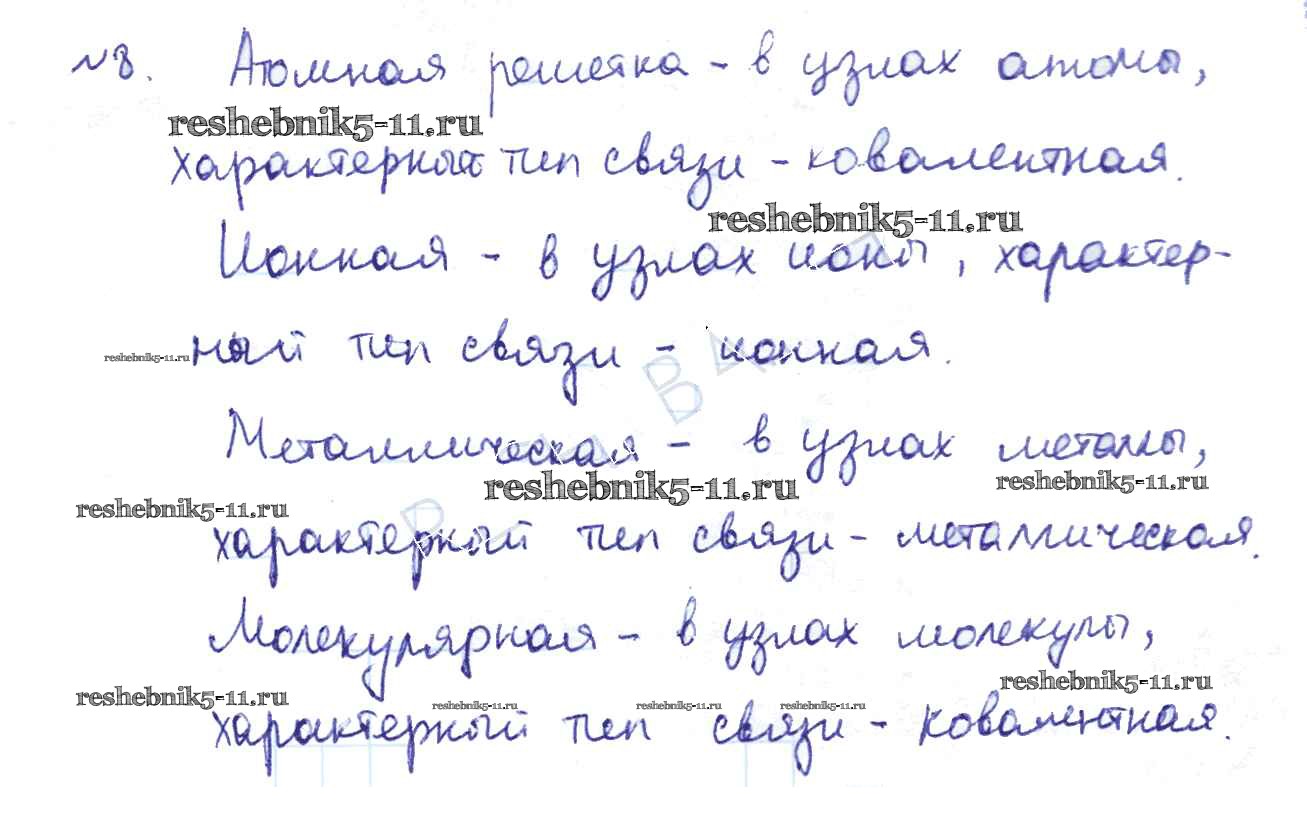 №8. Атомная решетка - в узлах атомы,
reshebnik5-11.ru
характерный тип связи - ковалентная.
reshebnik5-11.ru
Ионная - в узлах ионы, характер-
reshebnik5-11.ru ный тип связи - ионная.
Металлическая - в узлах металлы,
reshebnik5-11.ru reshebnik5-11.ru
reshebnik5-11.ru
характерный тип связи - металлическая.
Молекулярная - в узлах молекулы,
reshebnik5-11.ru
reshebnik5-11.ru reshebnik5-11.ru reshebnik5-11.ru reshebnik5-11.ru
характерный тип связи - ковалентная.